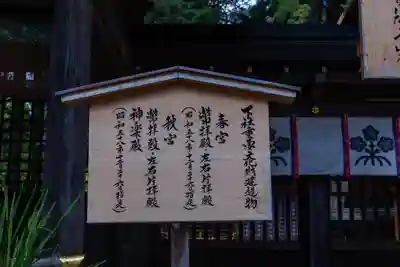 下社重要文化財建造物
春宮
幣拝殿・左右片拝殿
(昭和五十八年十二月二十六日指定)
秋宮
幣拝殿・左右片拝殿
神楽殿
(昭和五十八年十二月二十六日指定)